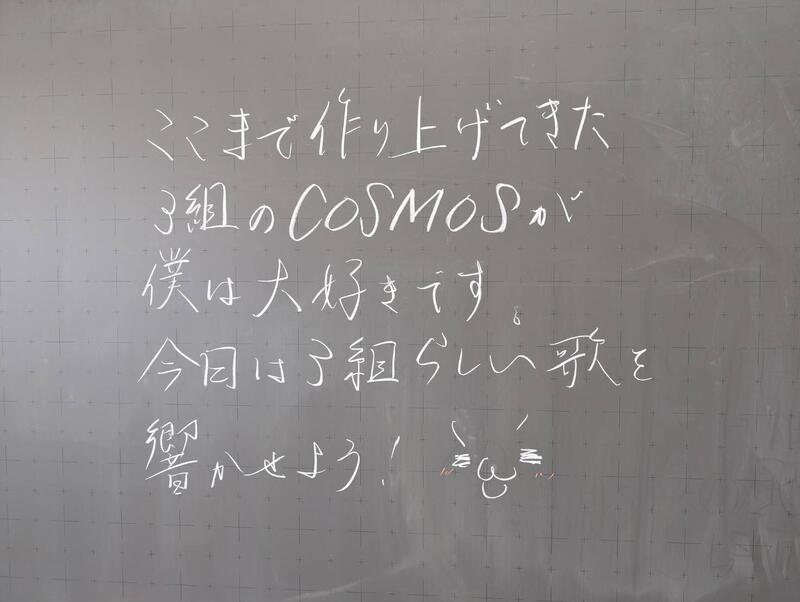 ここまで作り上げてきた
3組のCOSMOSが
僕は大好きです。
今日は3組らしい歌を
響かせよう!